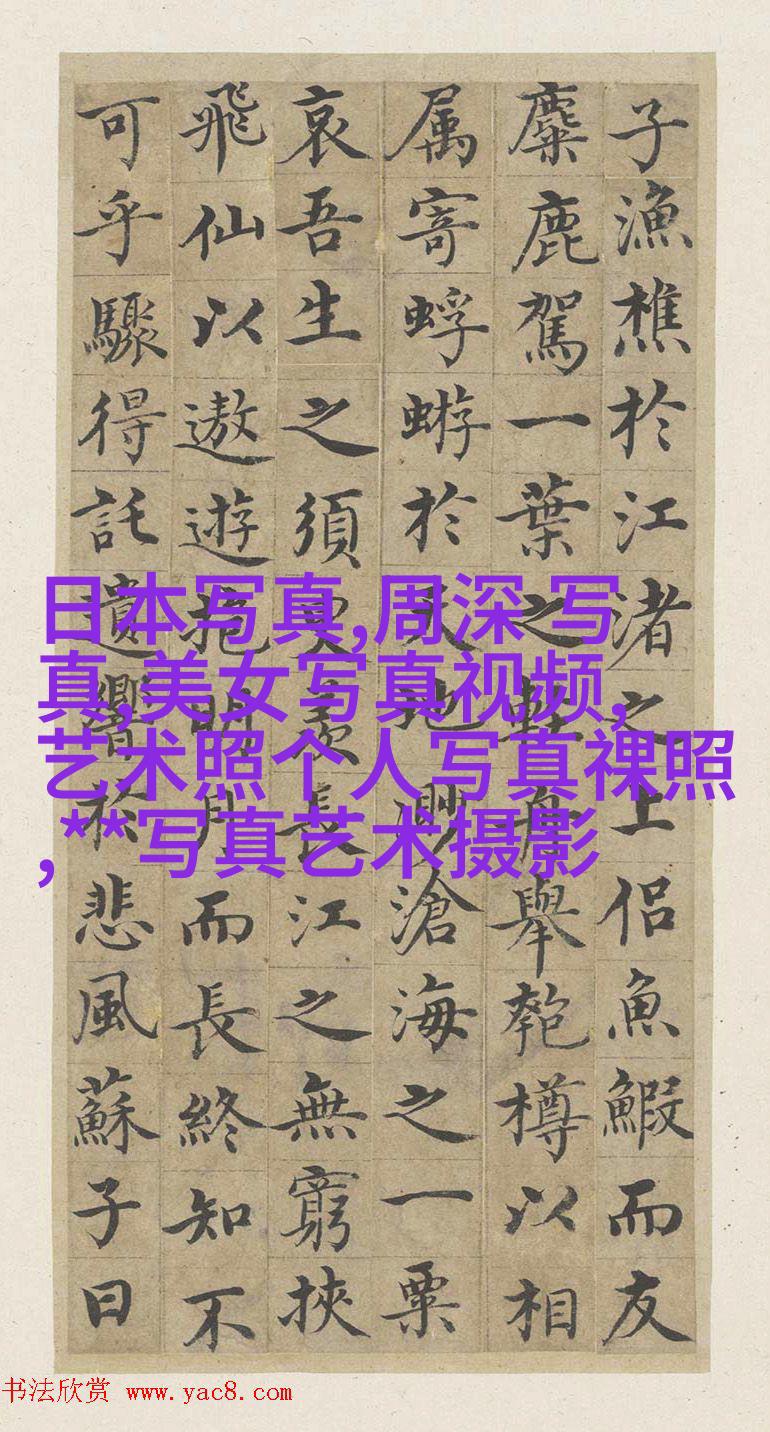 子漁樵於江渚之上侶魚鰕而友
麋鹿駕一葉之輕舟舉匏樽以相
属寄蜉蝣於天地渺滄海之一粟
哀吾生之須臾羨長江之無窮挾
飛仙以遨遊抱明月而長終知不
可乎驟得託遺響於悲風蘇子曰
日本写真,周深 写
真,美女写真视频,
艺术照个人写真裸照
,**写真艺术摄影
书法欣赏 www.yac8.com